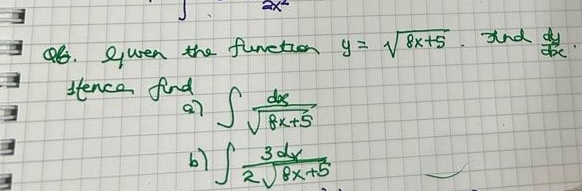 2x²
∫
Q6. Given the function y = √8x+5 . Find dy/dx.
Hence find
a) ∫ dx/√8x+5
b) ∫ 3dx/2√8x+5